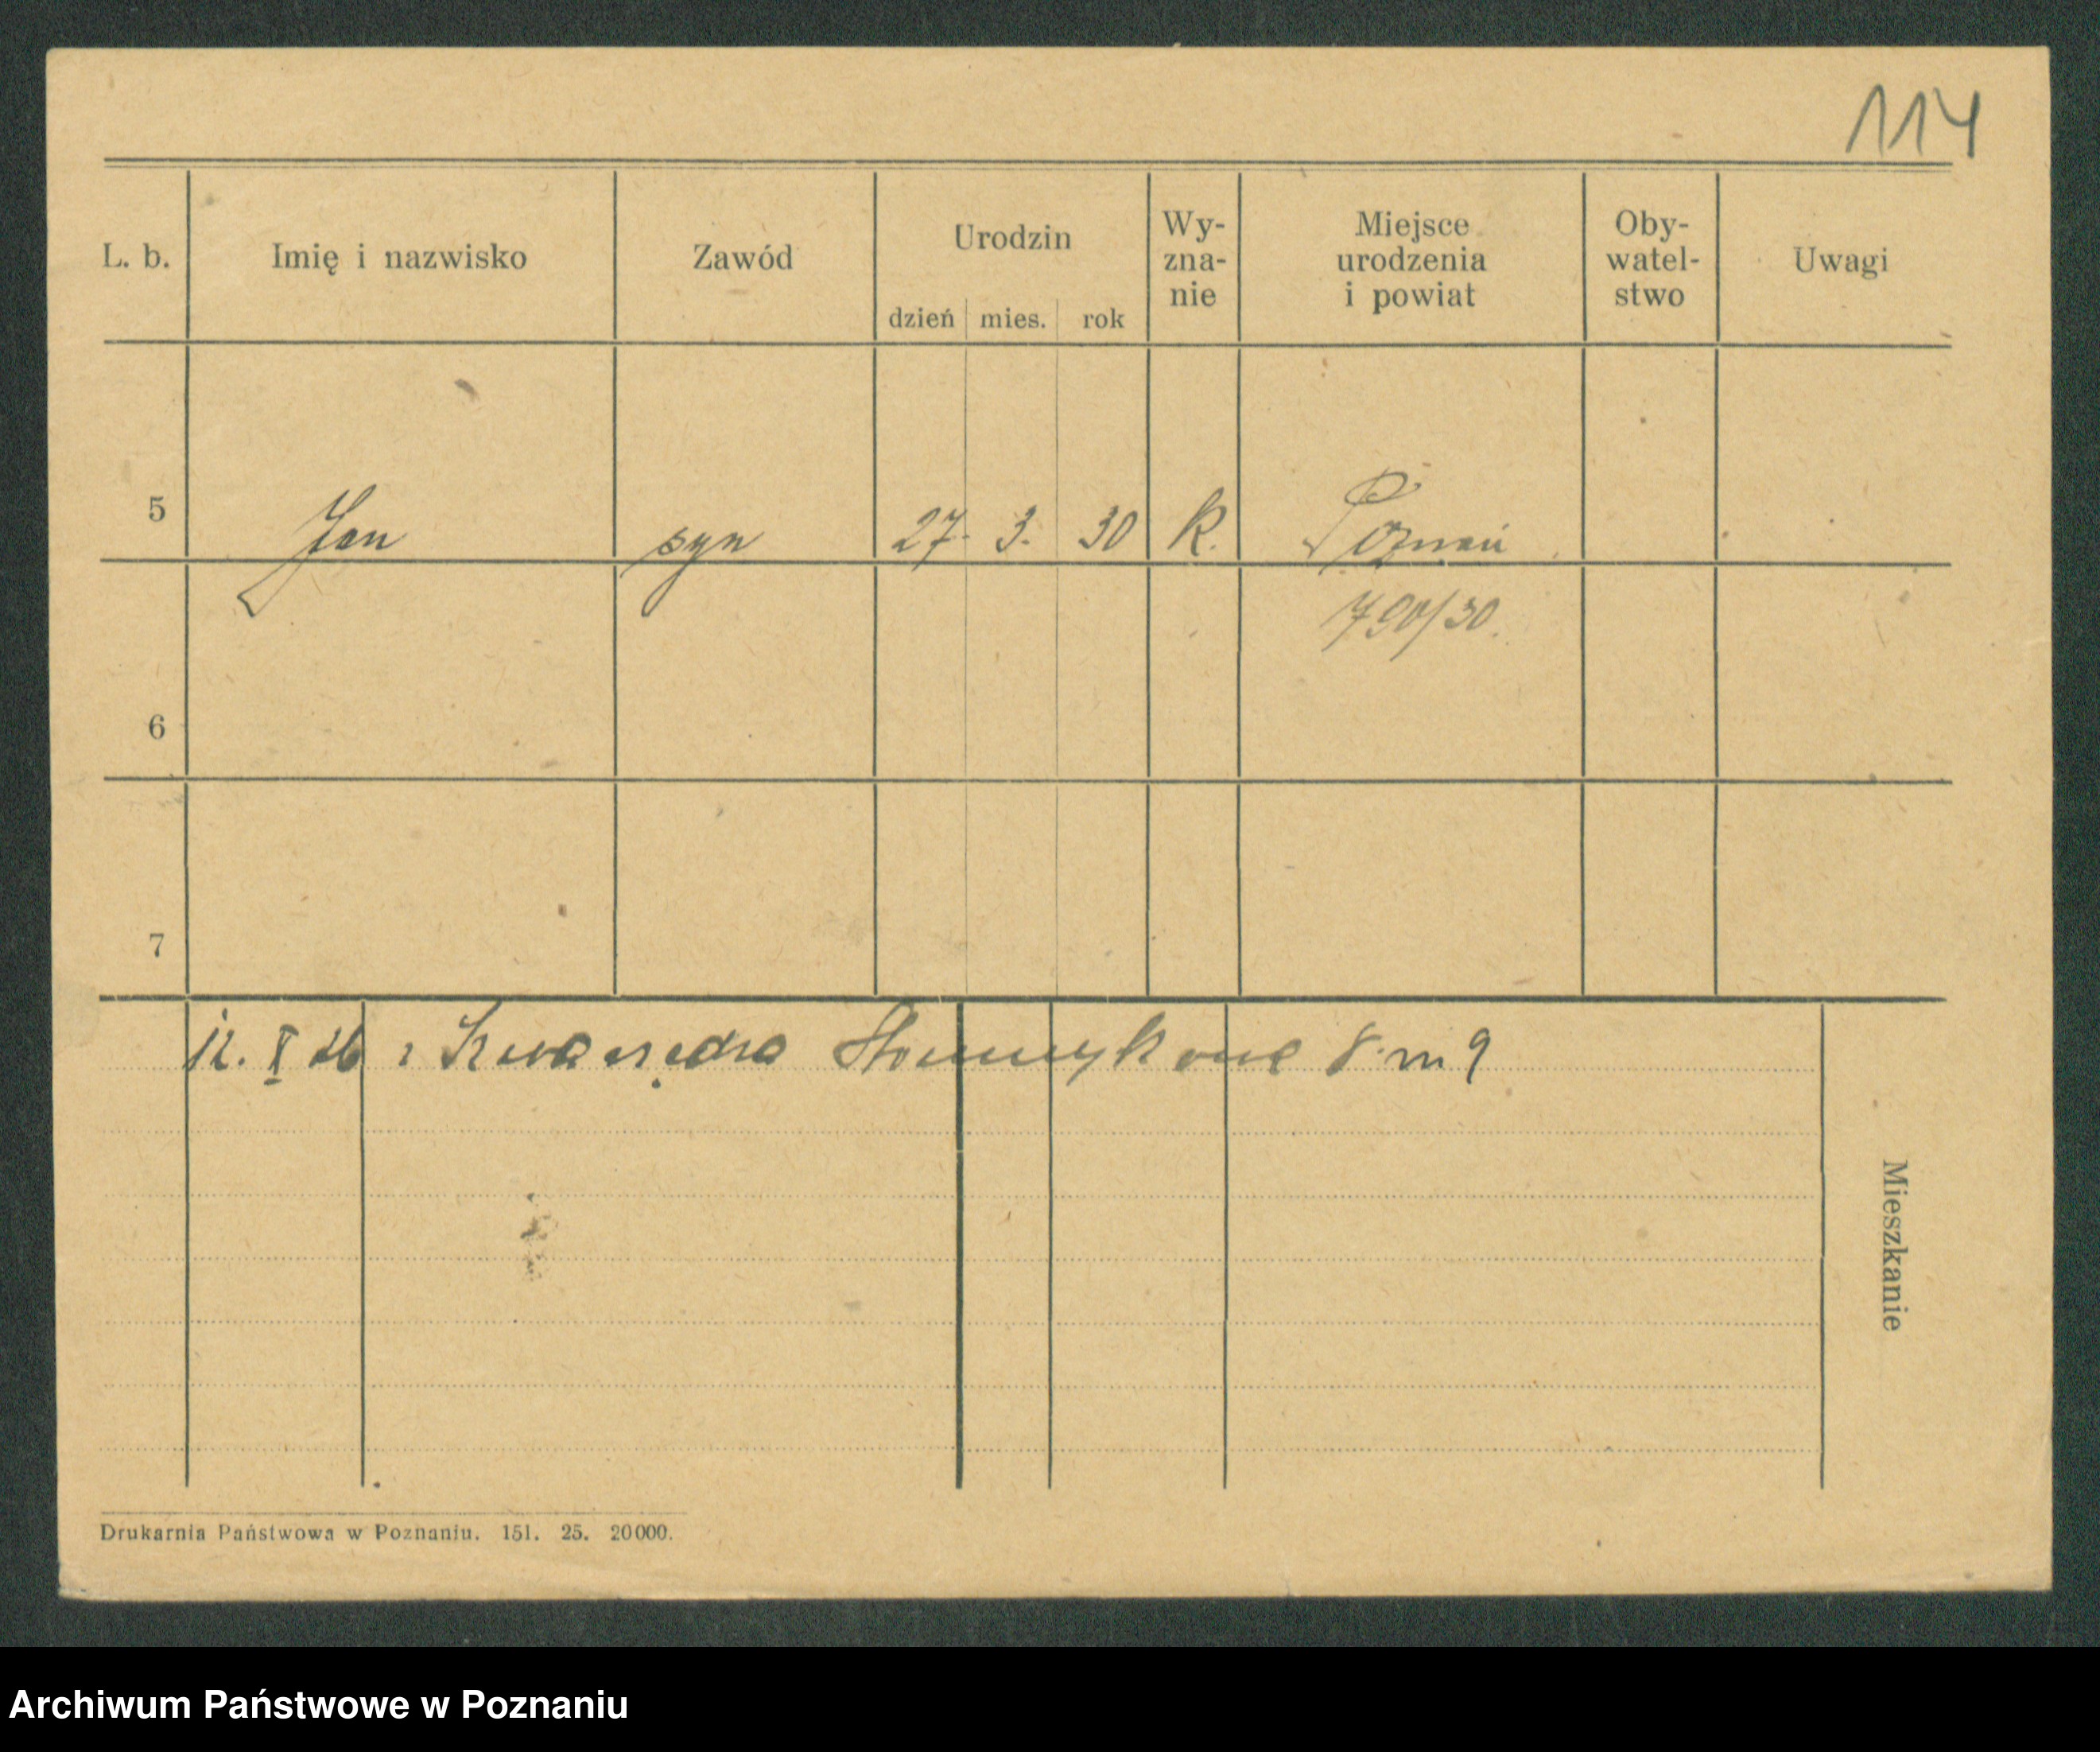 114
L. b. Imię i nazwisko Zawód Urodzin dzień mies. rok Wy-zna-nie Miejsce urodzenia i powiat Oby-watel-stwo Uwagi
5 Jan syn 27. 3. 30 k. Poznań
790/30.
6
7
12. X 26 8 m 9
Mieszkanie
Drukarnia Państwowa w Poznaniu. 151. 25. 20000.
Archiwum Państwowe w Poznaniu